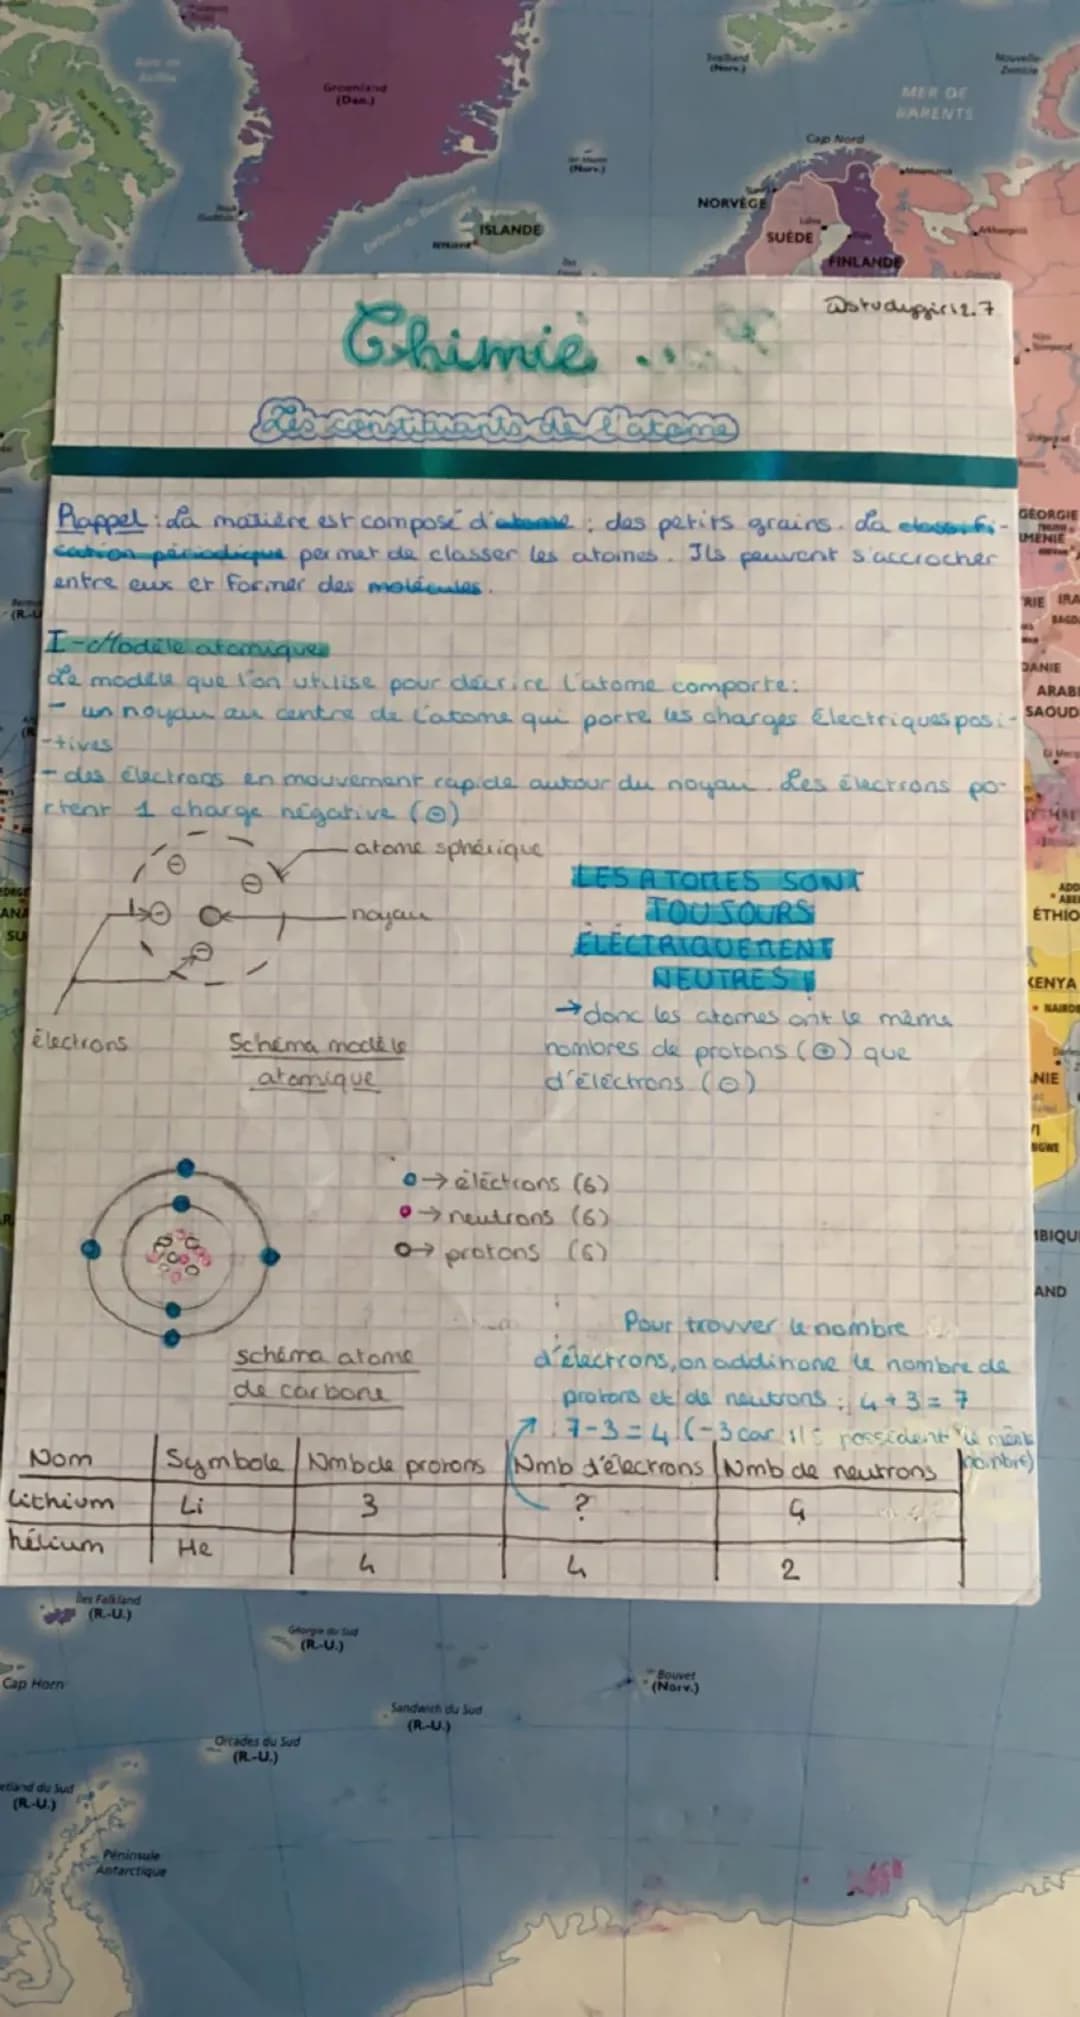 Groenland
(Dan.)
(Norv.)
Nouvelle-
Zemble
MER DE
BARENTS
Cap Nord
(Norv.)
NORVÈGE
ISLANDE
SUÈDE
FINLANDE
@studygirl2.7
Chimie ....
Les constituants de l'atome
Rappel : La matière est composé d'atome : des petits grains. La classifi-
cation périodique permet de classer les atomes. Ils peuvent s'accrocher
entre eux et former des molécules.
I - Modèle atomique
Le modèle que l'on utilise pour décrire l'atome comporte:
- un noyau au centre de l'atome qui porte les charges électriques posi-
-tives
- des électrons en mouvement rapide autour du noyau. Les électrons po-
rtent 1 charge négative (⊖)
atome sphérique
noyau
électrons
Schéma modèle
atomique
LES ATOMES SONT
TOUJOURS
ÉLECTRIQUEMENT
NEUTRES !
→ donc les atomes ont le même
nombres de protons (⊕) que
d'éléctrons (⊖)
→ éléctrons (6)
→ neutrons (6)
→ protons (6)
schéma atome
de carbone
Pour trouver le nombre
d'électrons, on addinone le nombre de
protons et de neutrons : 4 + 3 = 7
7 - 3 = 4 (-3 car ils possèdent le même
nombre)
Nom Symbole Nmb de protons Nmb d'électrons Nmb de neutrons
Lithium Li 3 ? 4
hélium He 4 4 2
GÉORGIE
DANIE
ARABI
SAOUD
ÉTHIO
KENYA
NIE
MBIQU
AND
Îles Falkland
(R.-U.)
Géorgie du Sud
(R.-U.)
Cap Horn
Bouvet
(Norv.)
Sandwich du Sud
(R.-U.)
Orcades du Sud
(R.-U.)
etland du Sud
(R.-U.)
Péninsule
Antarctique